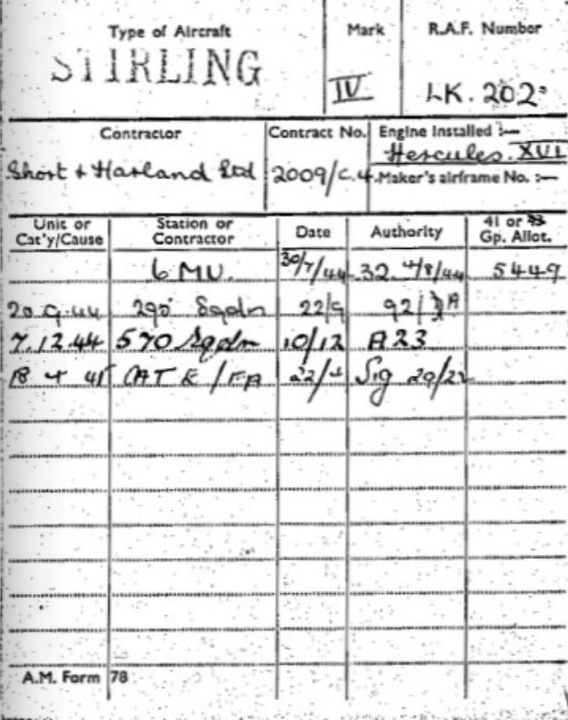 Type of Aircraft Mark R.A.F. Number
STIRLING IV LK. 202
Contractor Contract No. Engine Installed :—
Hercules. XVI
Short & Harland Ltd 2009/C.4. Maker's airframe No. :—
Unit or Cat'y/Cause Station or Contractor Date Authority 41 or 43 Gp. Allot.
6 MU. 30/7/44 32 4/8/44 5449
20.9.44 290 Sqdn 22/9 92/
7.12.44 570 Sqdn 10/12 A23
18 4 45 CAT E / FA 22/4 Sig 20/22
A.M. Form 78